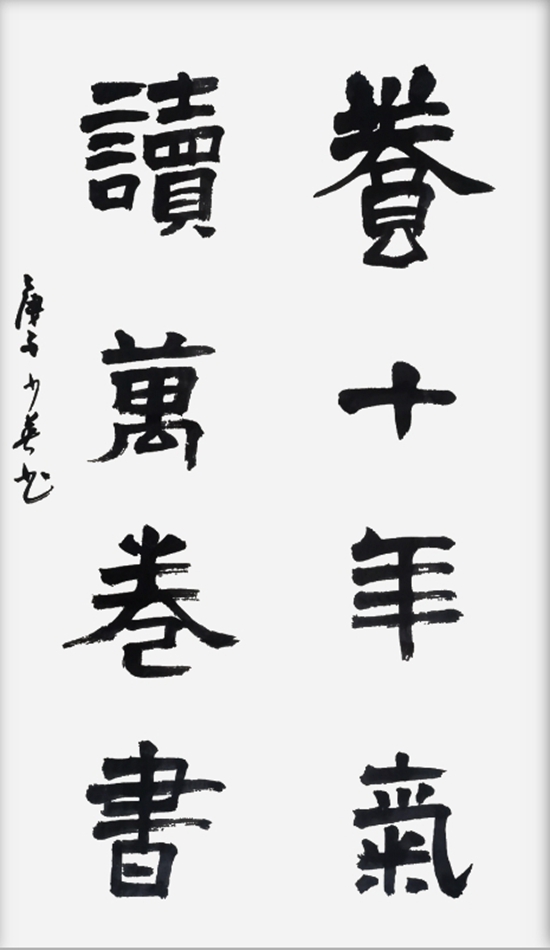 養十年氣
讀萬卷書
庚子少英书